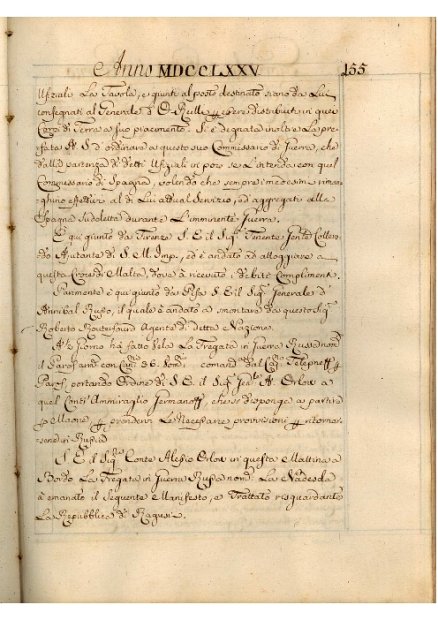 Anno MDCCLXXV 155
Uffiziali La Tavola, e giunti al posto destinato siano da Lui
consegnati al Generale d' O-Reilly p essere distribuiti in quei
Corpi di Terra a suo piacimento. Si è degnata inoltre La pre-
fata A. S. d' ordinare a questo suo Commissario di Guerra, che
dalla partenza di detti Uffiziali in poi se l' intenda con quel
Commissario di Spagna, volendo che sempre i medesimi riman-
ghino effettivi al di Lui attual Servizio, ed aggregati alla
Spagna sudetta durante L' imminente Guerra.
È qui giunto da Firenze S. E. il Sig. Tenente Gen.le
Aiutante di S. M. Imp., ed è andato ad alloggiare a
questa Croce di Malta, dove à ricevuti i debiti Complimenti.
Parimente è qui giunto da Pisa S. E. il Sig. Generale d'
Annibal Russo, il quale è andato a smontare da questo Sig.
Roberto Agente di detta Nazione.
giorno hà fatto Vela La Fregata in Guerra Russa nom.
il con 36. comand. dal Cap.
portando Ordine di S. E. il Sig. A. Orlow a
quel Cont' Ammiraglio che si disponga a partire
p Maone p prendervi Le Necessarie provvisioni p ritornar-
sene in Russia
S. E. il Sig. Conte Alessio Orlow in questa Mattina a
Bordo La Fregata in Guerra Russa nom. La Nadesda
à emanato il Seguente Manifesto, e Trattato risguardante
La Repubblica di Ragusi.